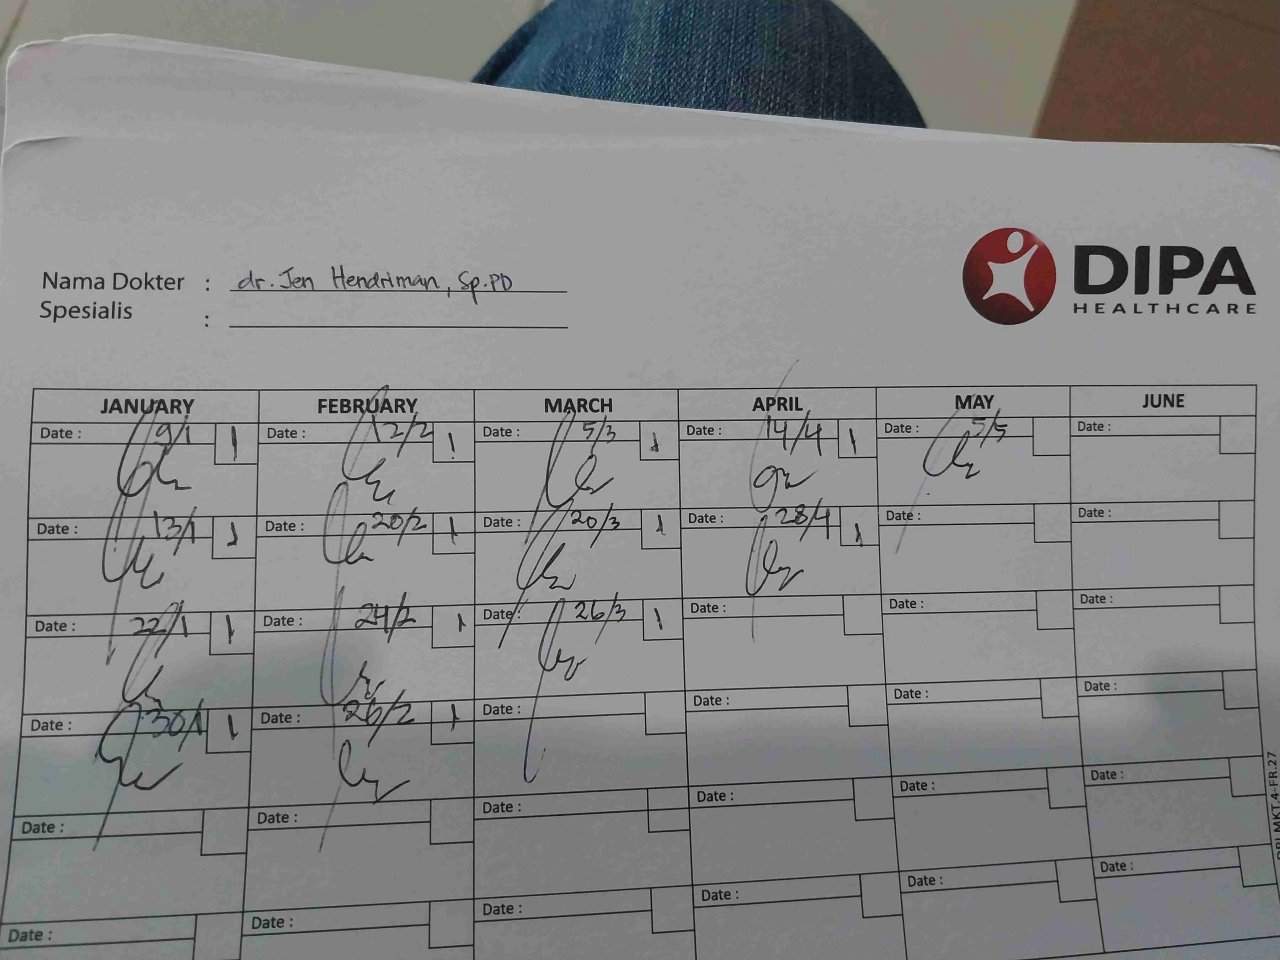 DIPA
HEALTHCARE
Nama Dokter : dr. Jen Hendriman, Sp.PD
Spesialis :
JANUARY FEBRUARY MARCH APRIL MAY JUNE
Date : 9/1 1 Date : 12/2 1 Date : 5/3 1 Date : 14/4 1 Date : 5/5 Date :
Date : 13/1 1 Date : 20/2 1 Date : 20/3 1 Date : 28/4 1 Date : Date :
Date : 22/1 1 Date : 24/2 1 Date : 26/3 1 Date : Date : Date :
Date : 30/1 1 Date : 26/2 1 Date : Date : Date : Date :
Date : Date : Date : Date : Date : Date :
Date : Date : Date : Date : Date : Date :